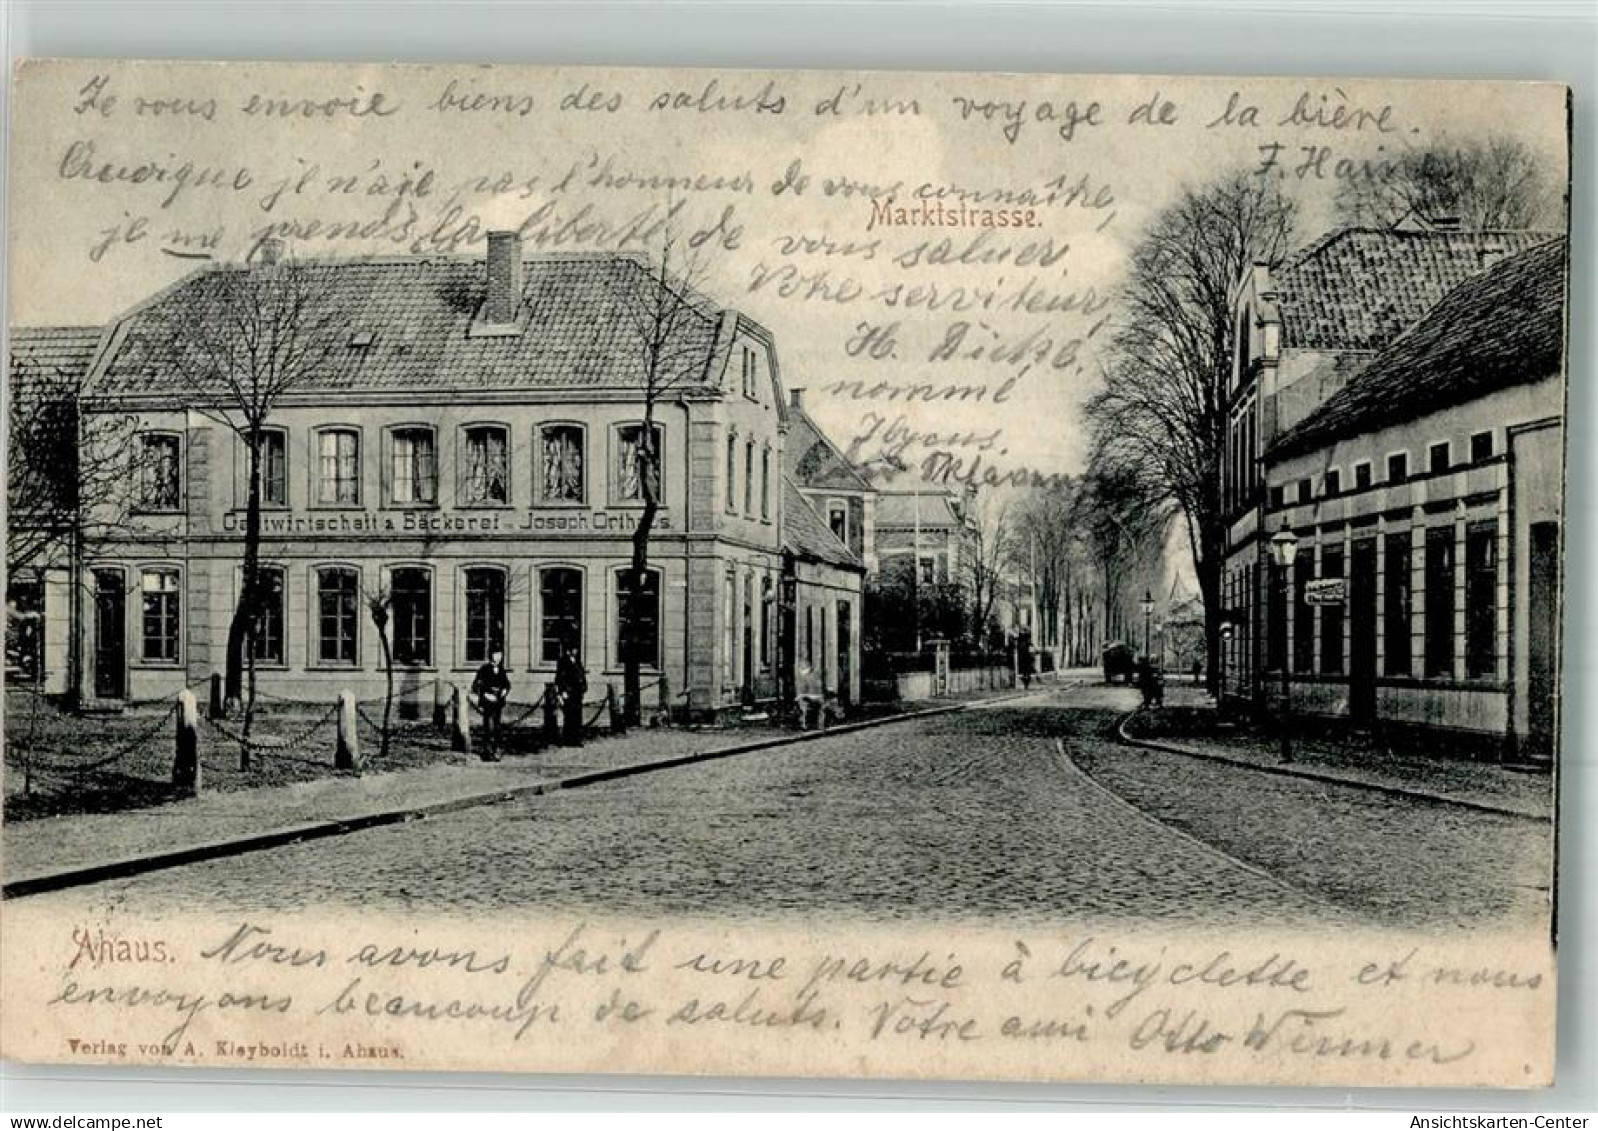 Je vous envoie biens des saluts d'un voyage de la bière.
F. Hain
Quoique je n'aie pas l'honneur de vous connaître,
Marktstrasse.
je me prends la liberté de vous saluer
Votre serviteur,
H.
nommé
Gastwirtschaft & Bäckerei von Joseph Orthaus.
Ahaus.
Nous avons fait une partie à bicyclette et nous
envoyons beaucoup de saluts. Votre ami Otto Wimmer
Verlag von A. Kleyboldt i. Ahaus.
Ansichtskarten-Center